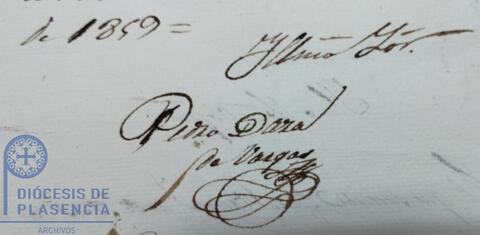 de 1859=
Yllmõ Sõr.
Pedro Daza
de Vargas
DIÓCESIS DE
PLASENCIA
ARCHIVOS